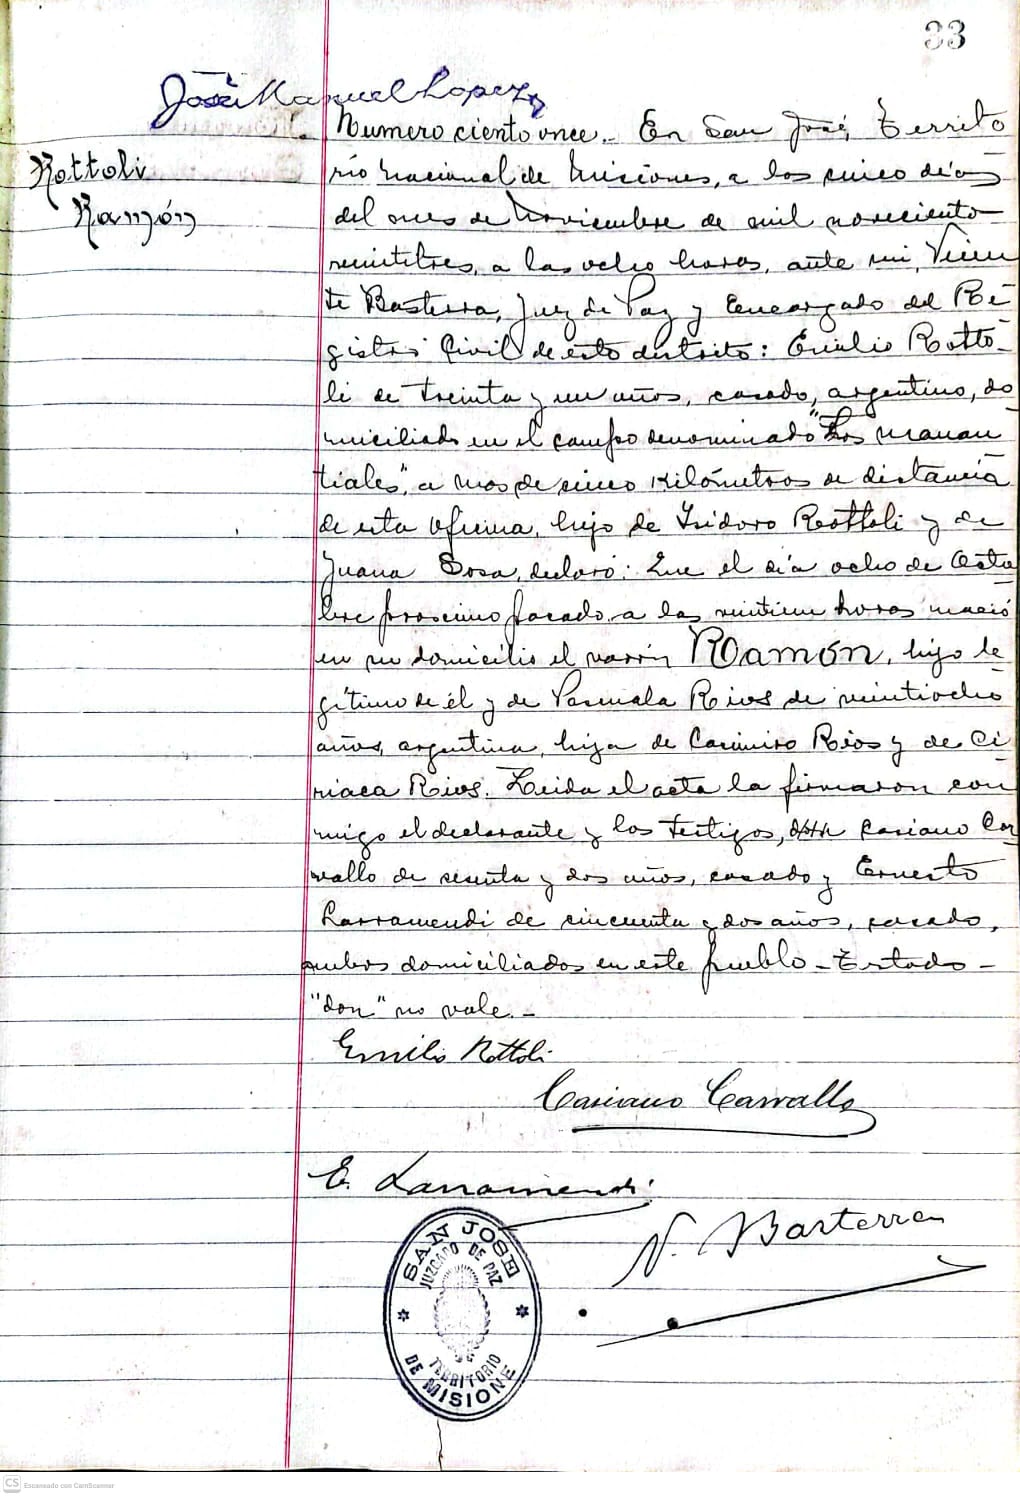 33
José Manuel Lopez
Rottoli
Ramón
Numero ciento once. En San José, Territo
rio Nacional de Misiones, a los cinco días
del mes de Noviembre de mil noveciento
veintitres, a las ocho horas, ante mi, Vicen
te Basterra, Juez de Paz y Encargado del Re-
gistro Civil de este distrito: Emilio Rotto-
li de treinta y un años, casado, argentino, do
miciliado en el campo denominado "Los manan
tiales", a mas de cinco kilómetros de distancia
de esta oficina, hijo de Isidoro Rottoli y de
Juana Sosa, declaró: Que el día ocho de Octu
bre proscimo pasado, a las veintiun horas nació
en su domicilio el varón Ramón, hijo le
gítimo de él y de Pascuala Rios de veintiocho
años, argentina, hija de Casimiro Rios y de Ci
riaca Rios. Leida el acta la firmaron con
migo el declarante y los testigos, don Casiano Car
vallo de sesenta y dos años, casado y Ernesto
Larramendi de cincuenta y dos años, casado,
ambos domiciliados en este pueblo - Testado -
"don" no vale. -
Emilio Rottoli
Casiano Carvallo
E. Larramendi
V. Basterra
SAN JOSE
JUZGADO DE PAZ
TERRITORIO
DE MISIONE
CS Escaneado con CamScanner